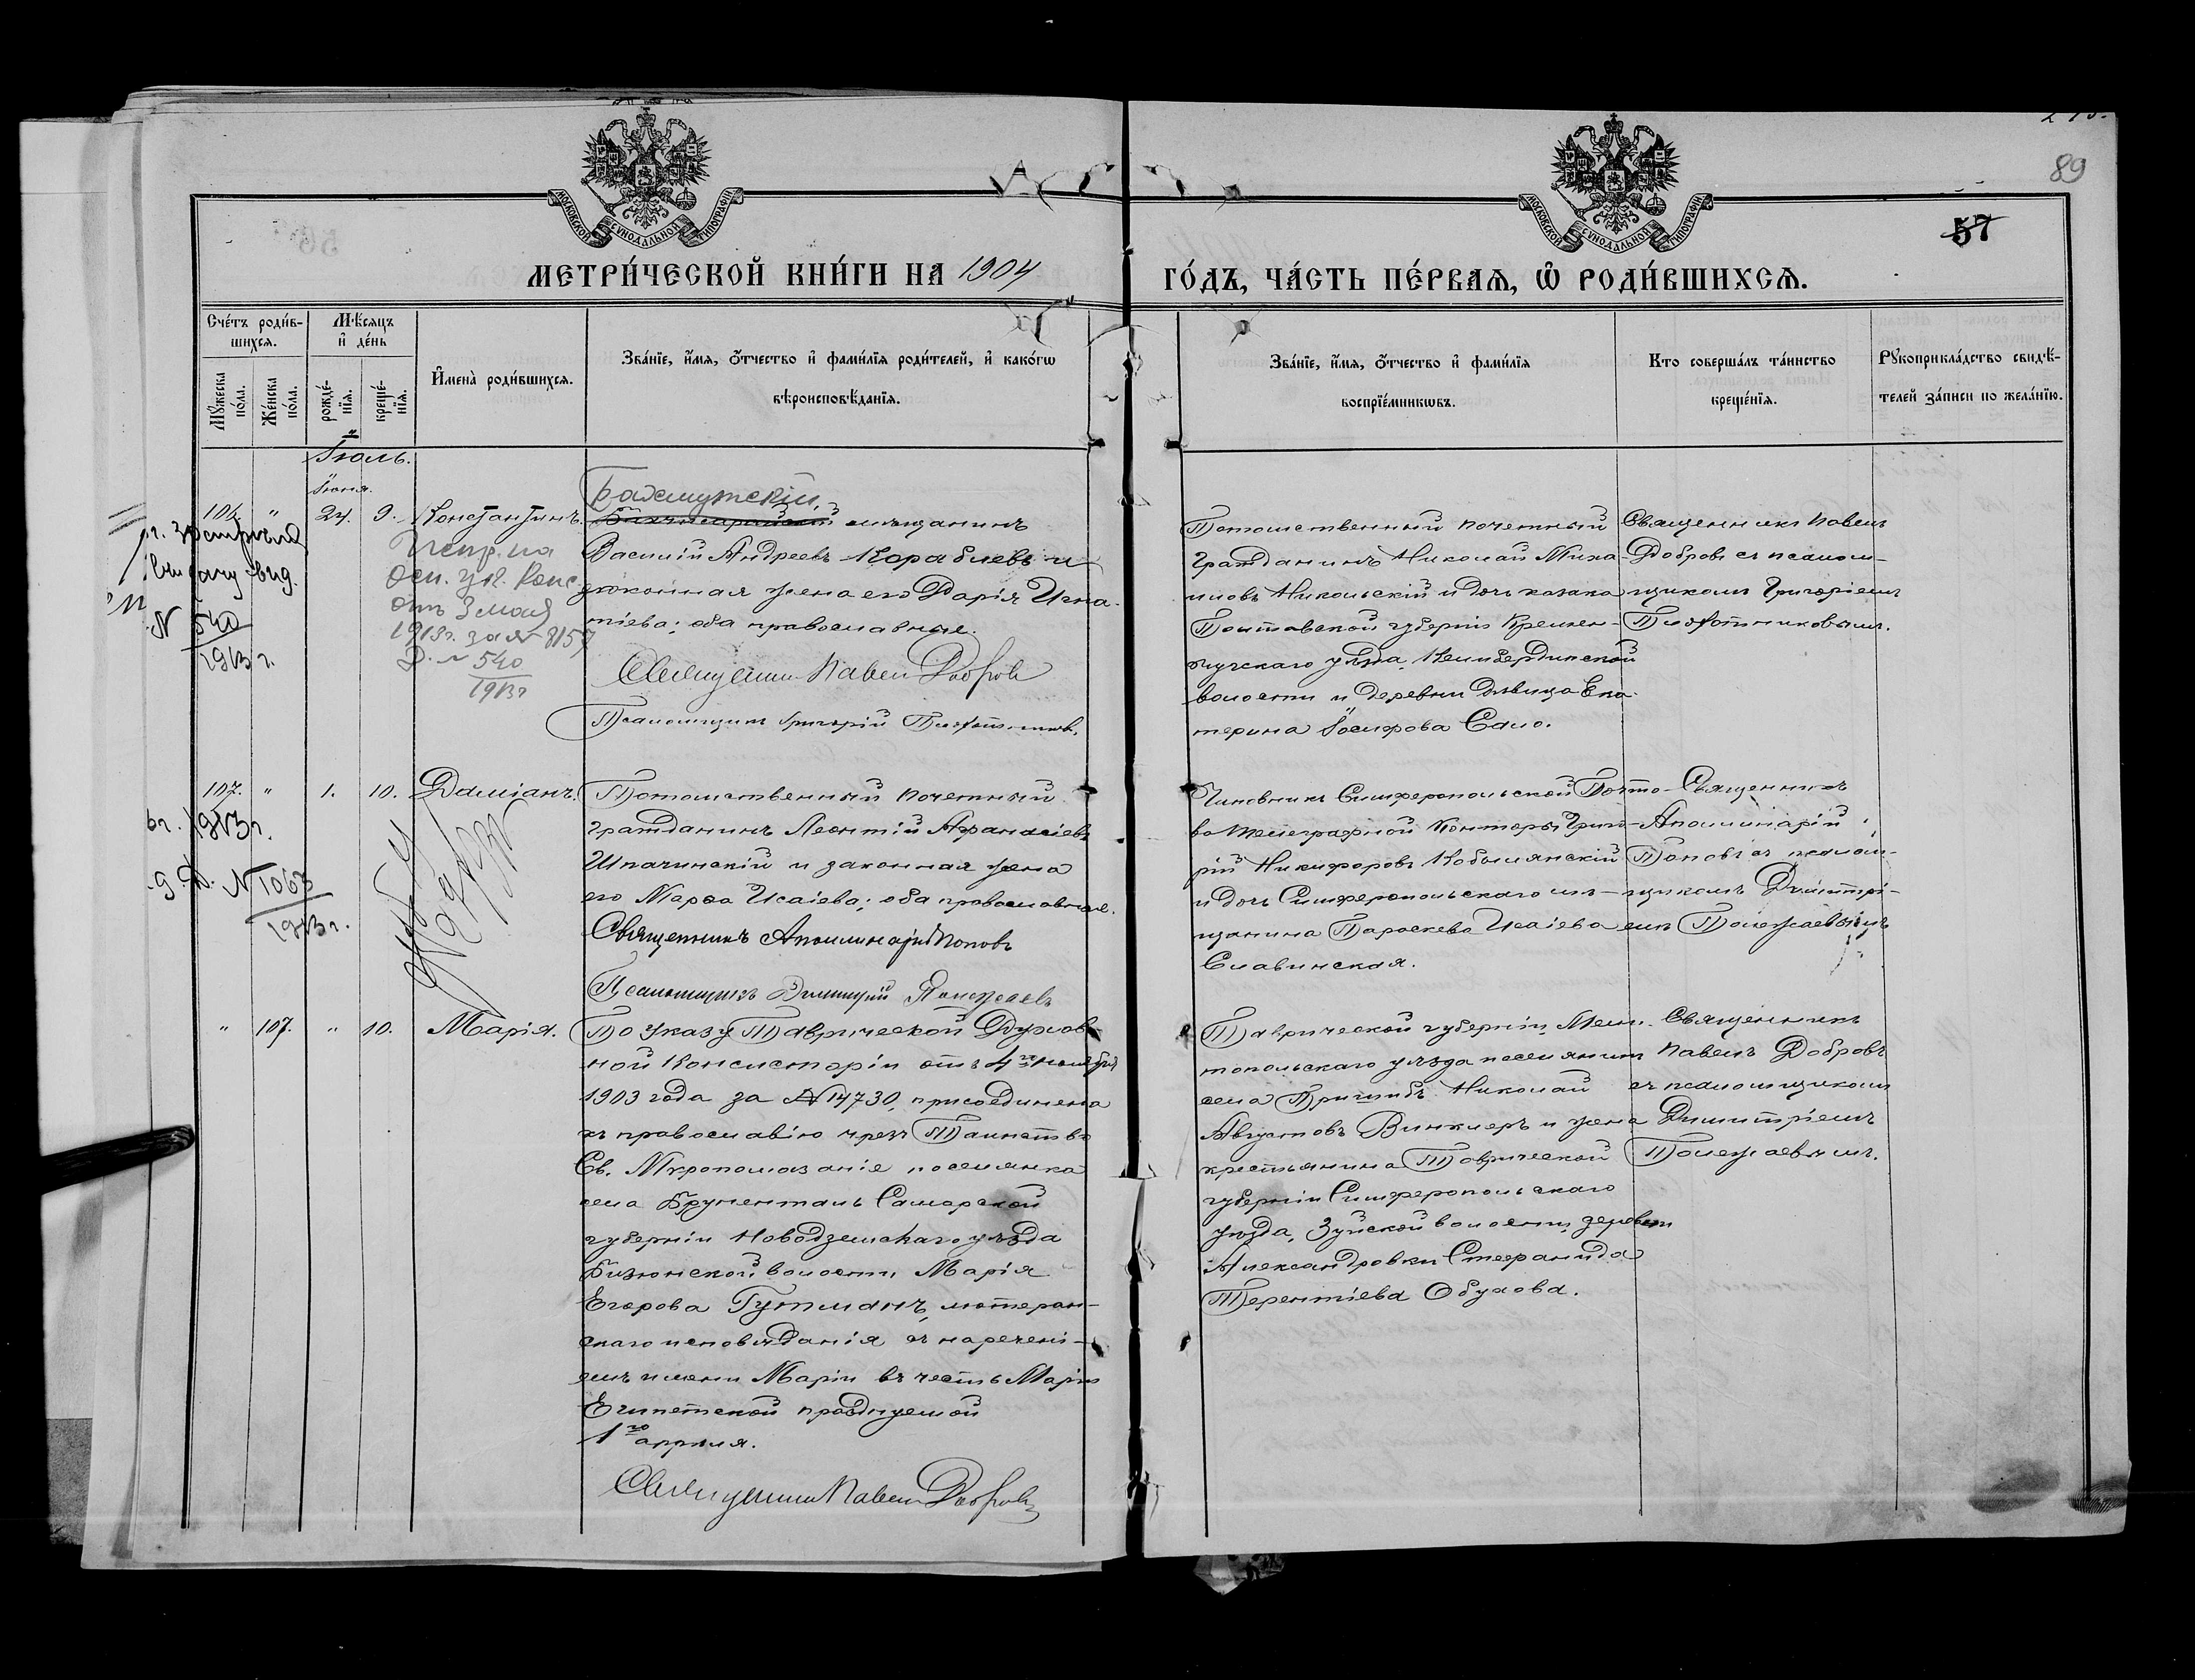 89
57
МОСКОВСКОЙ СУНОДАЛЬНОЙ ТИПОГРАФІИ
МОСКОВСКОЙ СУНОДАЛЬНОЙ ТИПОГРАФІИ
МЕТРИ́ЧЕСКОЙ КНИ́ГИ НА 1904
ГО́ДЪ, ЧА́СТЬ ПЕ́РВАѦ, Ѡ҆ РОДИ́ВШИХСѦ.
Сче́тъ роди́в-
шихсѧ.
Мꙋ́жеска по́ла.
Же́нска по́ла.
Мѣ́сяцъ
и҆ де́нь
рожде́-
нїѧ.
креще́-
нїѧ.
И҆мена̀ роди́вшихсѧ.
Зва́нїе, и҆́мѧ, ѻ҆́тчество и҆ фами́лїѧ роди́телей, и҆ како́гѡ
вѣроисповѣ́данїѧ.
Зва́нїе, и҆́мѧ, ѻ҆́тчество и҆ фами́лїѧ
воспрїе́мникѡвъ.
Кто соверша́лъ та́инство
креще́нїѧ.
Рꙋкоприкла́дство свидѣ́-
телей за́писи по жела́нїю.
Іюль.
Іюня.
106. " 24. 9. Константинъ.
Испр. на
осн. ук. Конс.
отъ 3 мая
1913г. за № 8157
Д. № 540
1913г
выдачу вид.
№ 540
1913 г.
Бахмутскій
Бахчисарайскій мѣщанинъ
Василій Андреевъ Кораблевъ и
законная жена его Дарія Игна-
тіева; оба православные.
Священникъ Павелъ Добровъ
Псаломщикъ Григорій Плотниковъ.
Потомственный почетный
Гражданинъ Николай Миха-
иловъ Никольскій и дочь казака
Полтавской губерніи Кремен-
чугскаго уѣзда, Келибердинской
волости и деревни дѣвица Ека-
терина Іосифова Сало.
Священникъ Павелъ
Добровъ съ псалом-
щикомъ Григоріемъ
Плотниковымъ.
107. " 1. 10. Даміанъ.
1913г.
№ 1063
1913г.
Потомственный почетный
Гражданинъ Леонтій Афанасіевъ
Шпачинскій и законная жена
его Марѳа Исаіева; оба православные.
Священникъ Аполлинарій Поповъ
Псаломщикъ Димитрій Полежаевъ
Чиновникъ Симферопольской Почто-
во Телеграфной Конторы Григо-
рій Никифоровъ Кобылянскій
и дочь Симферопольскаго мѣ-
щанина Параскева Исаіева
Славинская.
Священникъ
Аполлинарій
Поповъ съ псалом-
щикомъ Димитрі-
емъ Полежаевымъ
" 107. " 10. Марія.
По указу Таврической Духов-
ной Консисторіи отъ 4го ноября
1903 года за № 14730, присоединена
къ православію чрезъ Таинство
Св. Мѵропомазаніе поселянка
села Бруненталь Самарской
губерніи Новоузенскаго уѣзда
Бизюкской волости, Марія
Егорова Гутманъ, лютеран-
скаго исповѣданія съ нареченi-
емъ имени Маріи въ честь Маріи
Египетской празднуемой
1го апрѣля.
Священникъ Павелъ Добровъ
Таврической губерніи, Мели-
топольскаго уѣзда поселянинъ
села Пришибъ Николай
Августовъ Винклеръ и жена
крестьянина Таврической
губерніи Симферопольскаго
уѣзда, Зуйской волости, деревни
Александровки Стефанида
Терентіева Обухова.
Священникъ
Павелъ Добровъ
съ псаломщикомъ
Димитріемъ
Полежаевымъ.